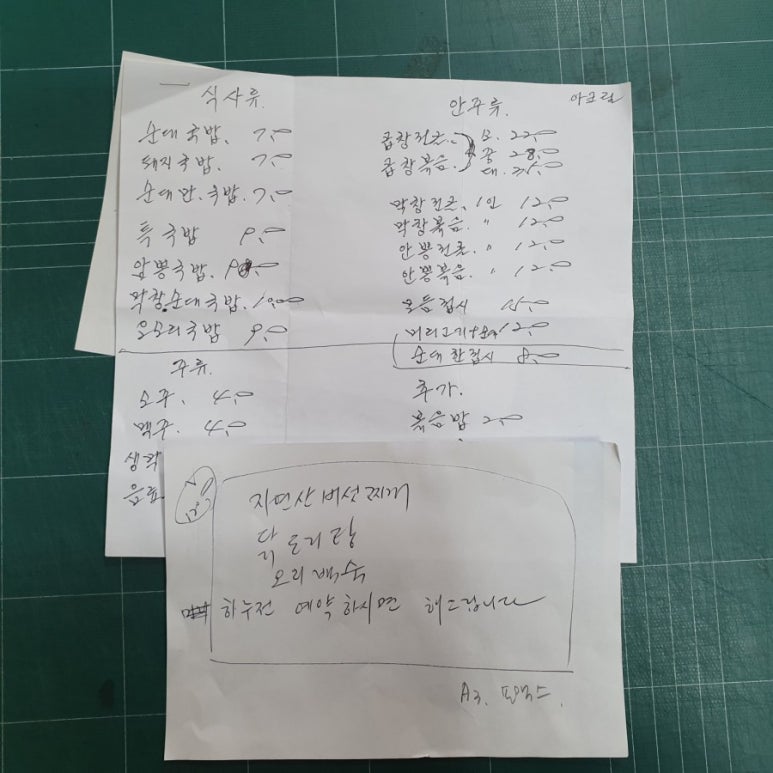 식사류.
순대국밥. 7,0
돼지국밥. 7,0
순대만.국밥. 7,0
특국밥 9,0
암뽕국밥. 9,0
막창순대국밥. 10,00
오소리국밥 9,0
주류.
소주. 4,0
맥주. 4,0
생막
음료.
안주류.
아크릴
곱창전골. 소. 22,0
곱창볶음. 중 28,0
대. 35,0
막창전골. 1인 12,0
막창볶음. " 12,0
안뽕전골. " 12,0
안뽕볶음. " 12,0
모듬접시 15,0
머리고기 12,0
순대한접시 8,0
추가.
볶음밥 2,0
자연산버섯찌개
닭도리탕
오리백숙
하루전 예약하시면 해드립니다
A3. 포맥스.